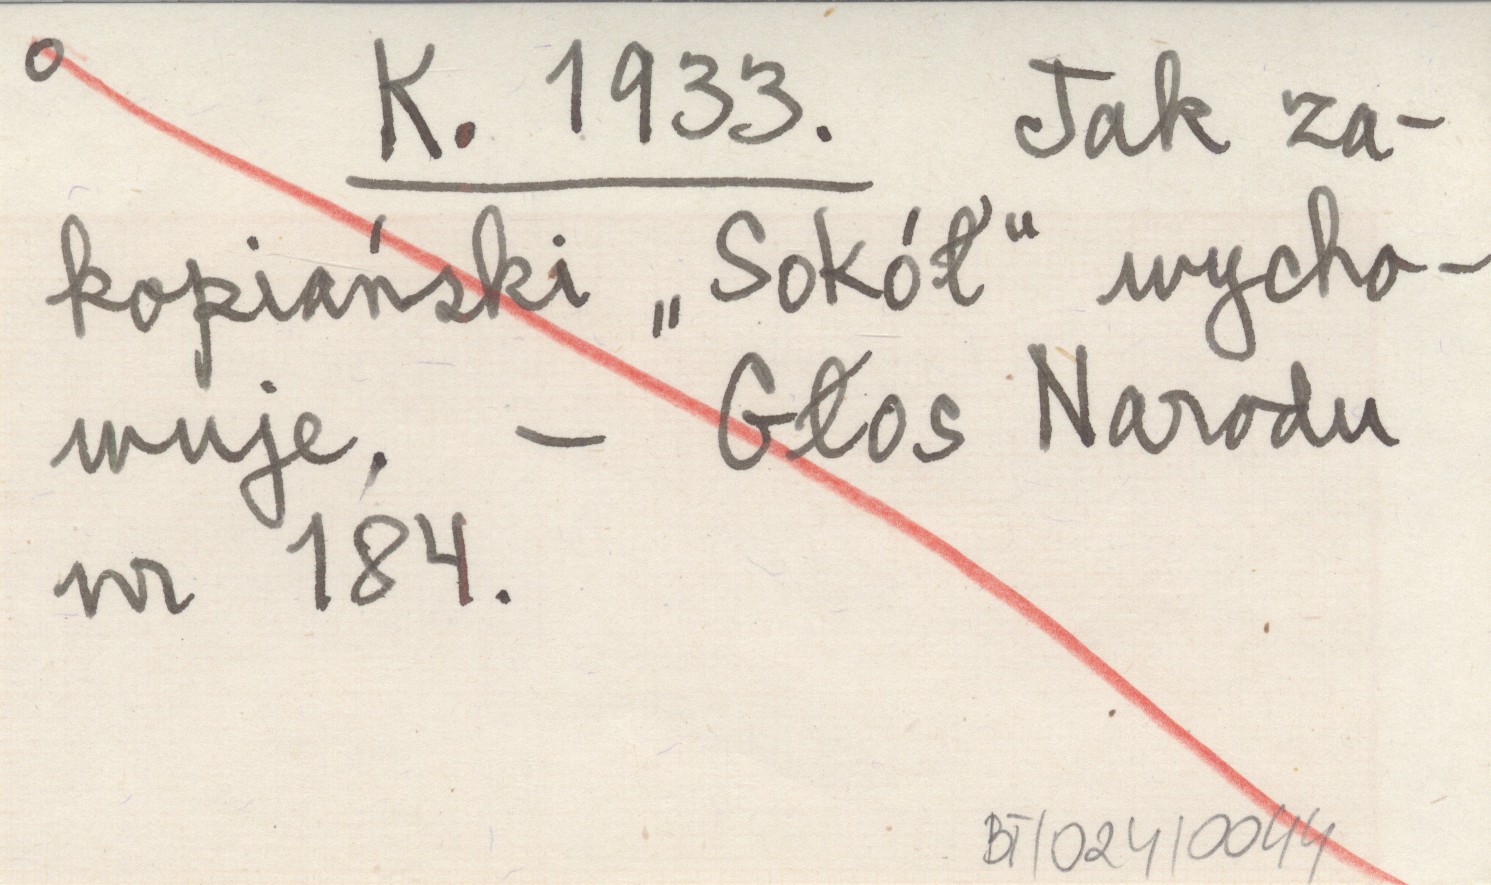 o K. 1933. Jak za-
kopiański „Sokół" wycho-
wuje. – Głos Narodu
nr 184.
BT/024/0044